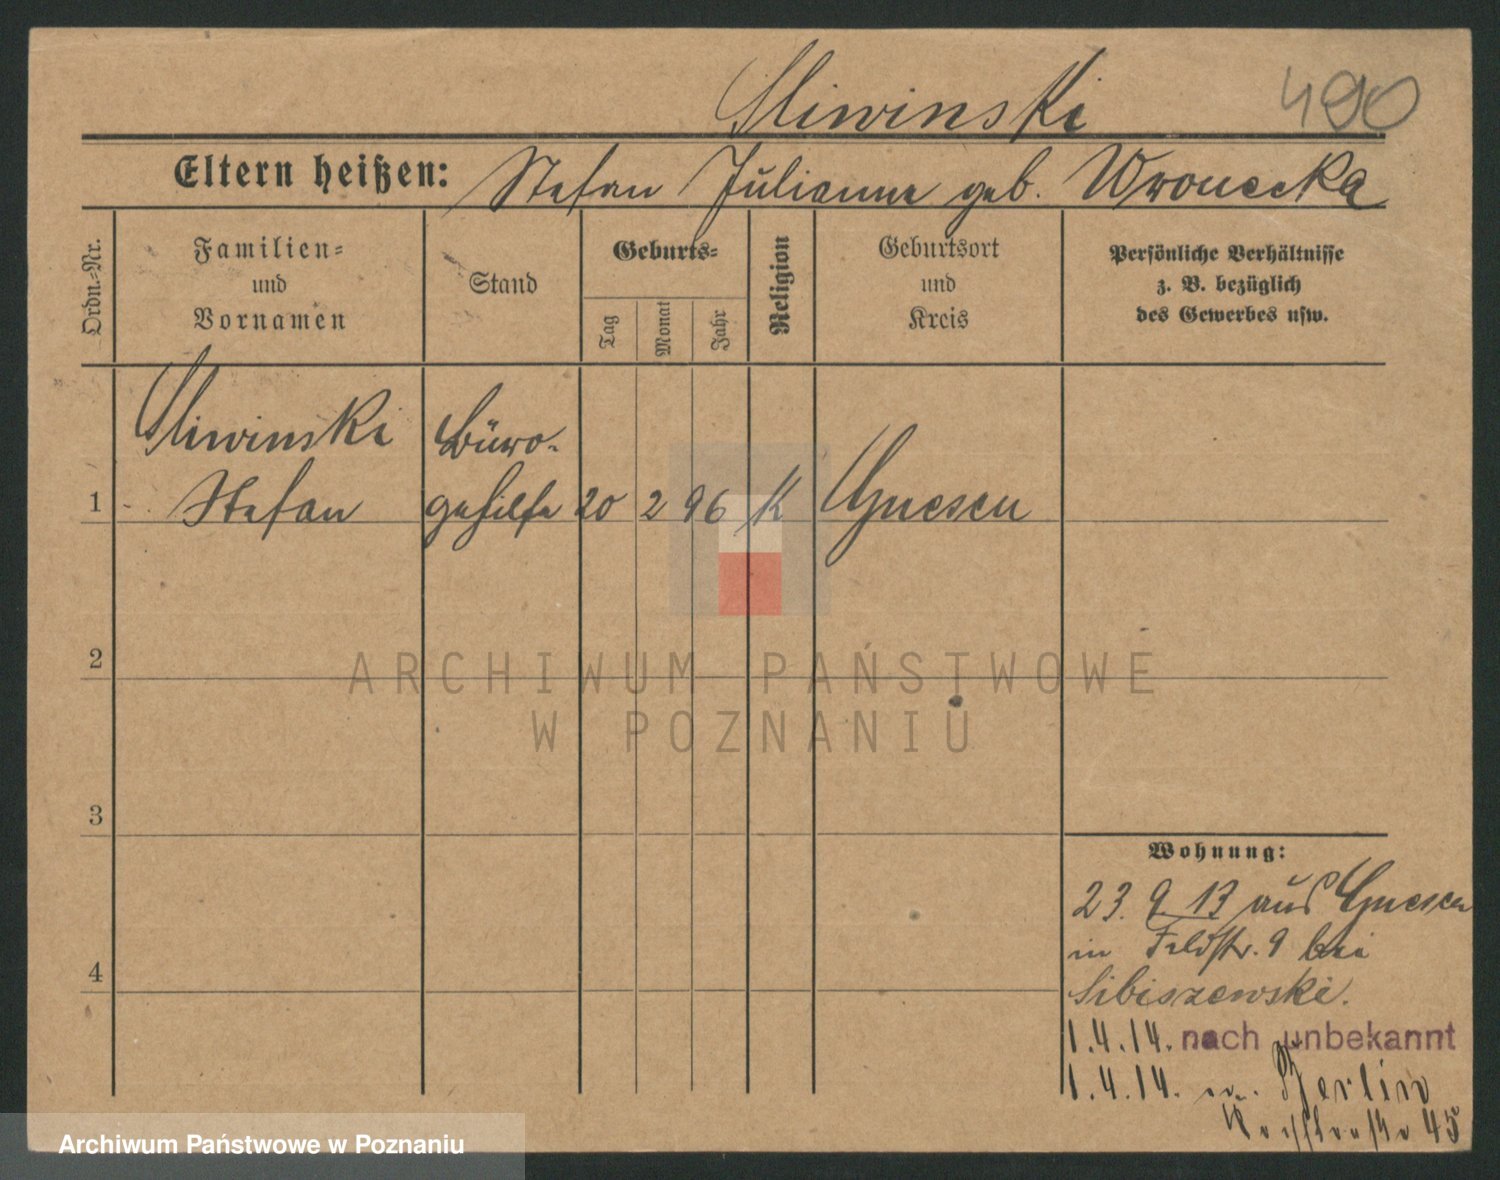 Sliwinski 490
Eltern heißen: Stefan Julianna geb. Wronecka
Ordn.-Nr.
Familien=
und
Vornamen
Stand
Geburts=
Tag
Monat
Jahr
Religion
Geburtsort
und
Kreis
Persönliche Verhältnisse
z. B. bezüglich
des Gewerbes usw.
Sliwinski Büro-
1 Stefan gehilfe 20 2 96 K Gnesen
2
3
4
Wohnung:
23. 9 13 aus Gnesen
in Feldstr. 9 bei
Sibiszewski.
1.4.14. nach unbekannt
1.4.14. Berlin
45
ARCHIWUM PAŃSTWOWE
W POZNANIU
Archiwum Państwowe w Poznaniu